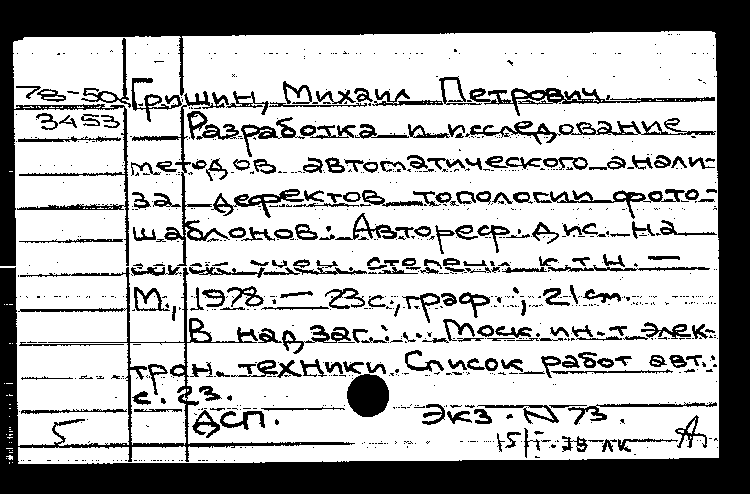 78-50 Гришин, Михаил Петрович.
3453 Разработка и исследование
методов автоматического анали-
за дефектов топологии фото-
шаблонов: Автореф. дис. на
соиск. учен. степени к.т.н. —
М., 1978. — 23 с., граф.; 21 см.
В надзаг.: ... Моск. ин-т элек-
трон. техники. Список работ авт.:
с. 23.
5 ДСП. Экз. N 73.
15/I-78 ЛК